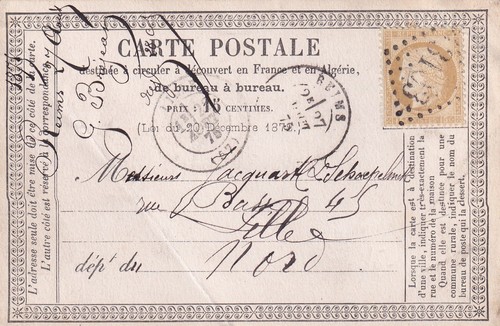 CARTE POSTALE
destinée à circuler à découvert en France et en Algérie,
de bureau à bureau.
PRIX : 15 CENTIMES.
(Loi du 20 Décembre 1872.)
REIMS
27
75
Monsieur Jacquart
rue Bass 45
Lille
dépt du Nord
L'adresse seule doit être mise de ce côté de la carte.
L'autre côté est réservé à la correspondance.
Lorsque la carte est à destination
d'une ville, indiquer très-exactement la
rue et le numéro de la maison
Quand elle est destinée pour une
commune rurale, indiquer le nom du
bureau de poste qui la dessert.
Reims 27 Août